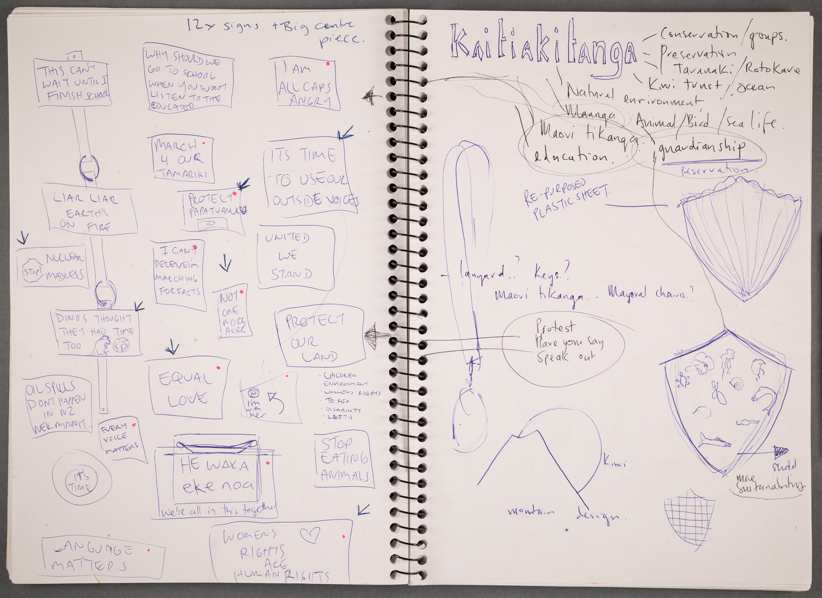 12x signs + Big centre
piece.
THIS CAN'T
WAIT UNTIL I
FINISH SCHOOL
WHY SHOULD WE
GO TO SCHOOL
WHEN YOU WONT
LISTEN TO THE
EDUCATED
I AM
ALL CAPS
ANGRY
MARCH
4 OUR
TAMARIKI
ITS TIME
TO USE OUR
OUTSIDE VOICES
LIAR LIAR
EARTH'S
ON FIRE
PROTECT
PAPATUANUKU
STOP
NUCLEAR
MADNESS
I CAN'T
BELEIVE IM
MARCHING
FOR FACTS
UNITED
WE
STAND
NOT
ONE
MORE
ACRE
DINO'S THOUGHT
THEY HAD TIME
TOO
PROTECT
OUR
LAND
EQUAL
LOVE
I'm
with
her
• CHILDREN
ENVIRONMENT
• WOMEN'S RIGHTS
• TE REO
• DISABILITY
• LGBTQ
OIL SPILLS
DON'T HAPPEN
IN NZ
NEK MINNIT
EVERY
VOICE
MATTERS
STOP
EATING
ANIMALS
HE WAKA
eke noa
We're all in this together
IT'S
TIME
LANGUAGE
MATTERS
WOMENS
RIGHTS
ARE
HUMAN RIGHTS
Kaitiakitanga
Conservation/groups.
Preservation.
Taranaki/Rotokare
Kiwi trust/ocean
Natural environment
Animal/Bird/sea life.
Maori tikanga
education.
guardianship
reservation
RE-PURPOSED
PLASTIC SHEET
lanyard..? Keys?
Maori tikanga... Mayoral chains?
Protest
Have your say
Speak out
Kiwi
mountain design.
more
sustainability